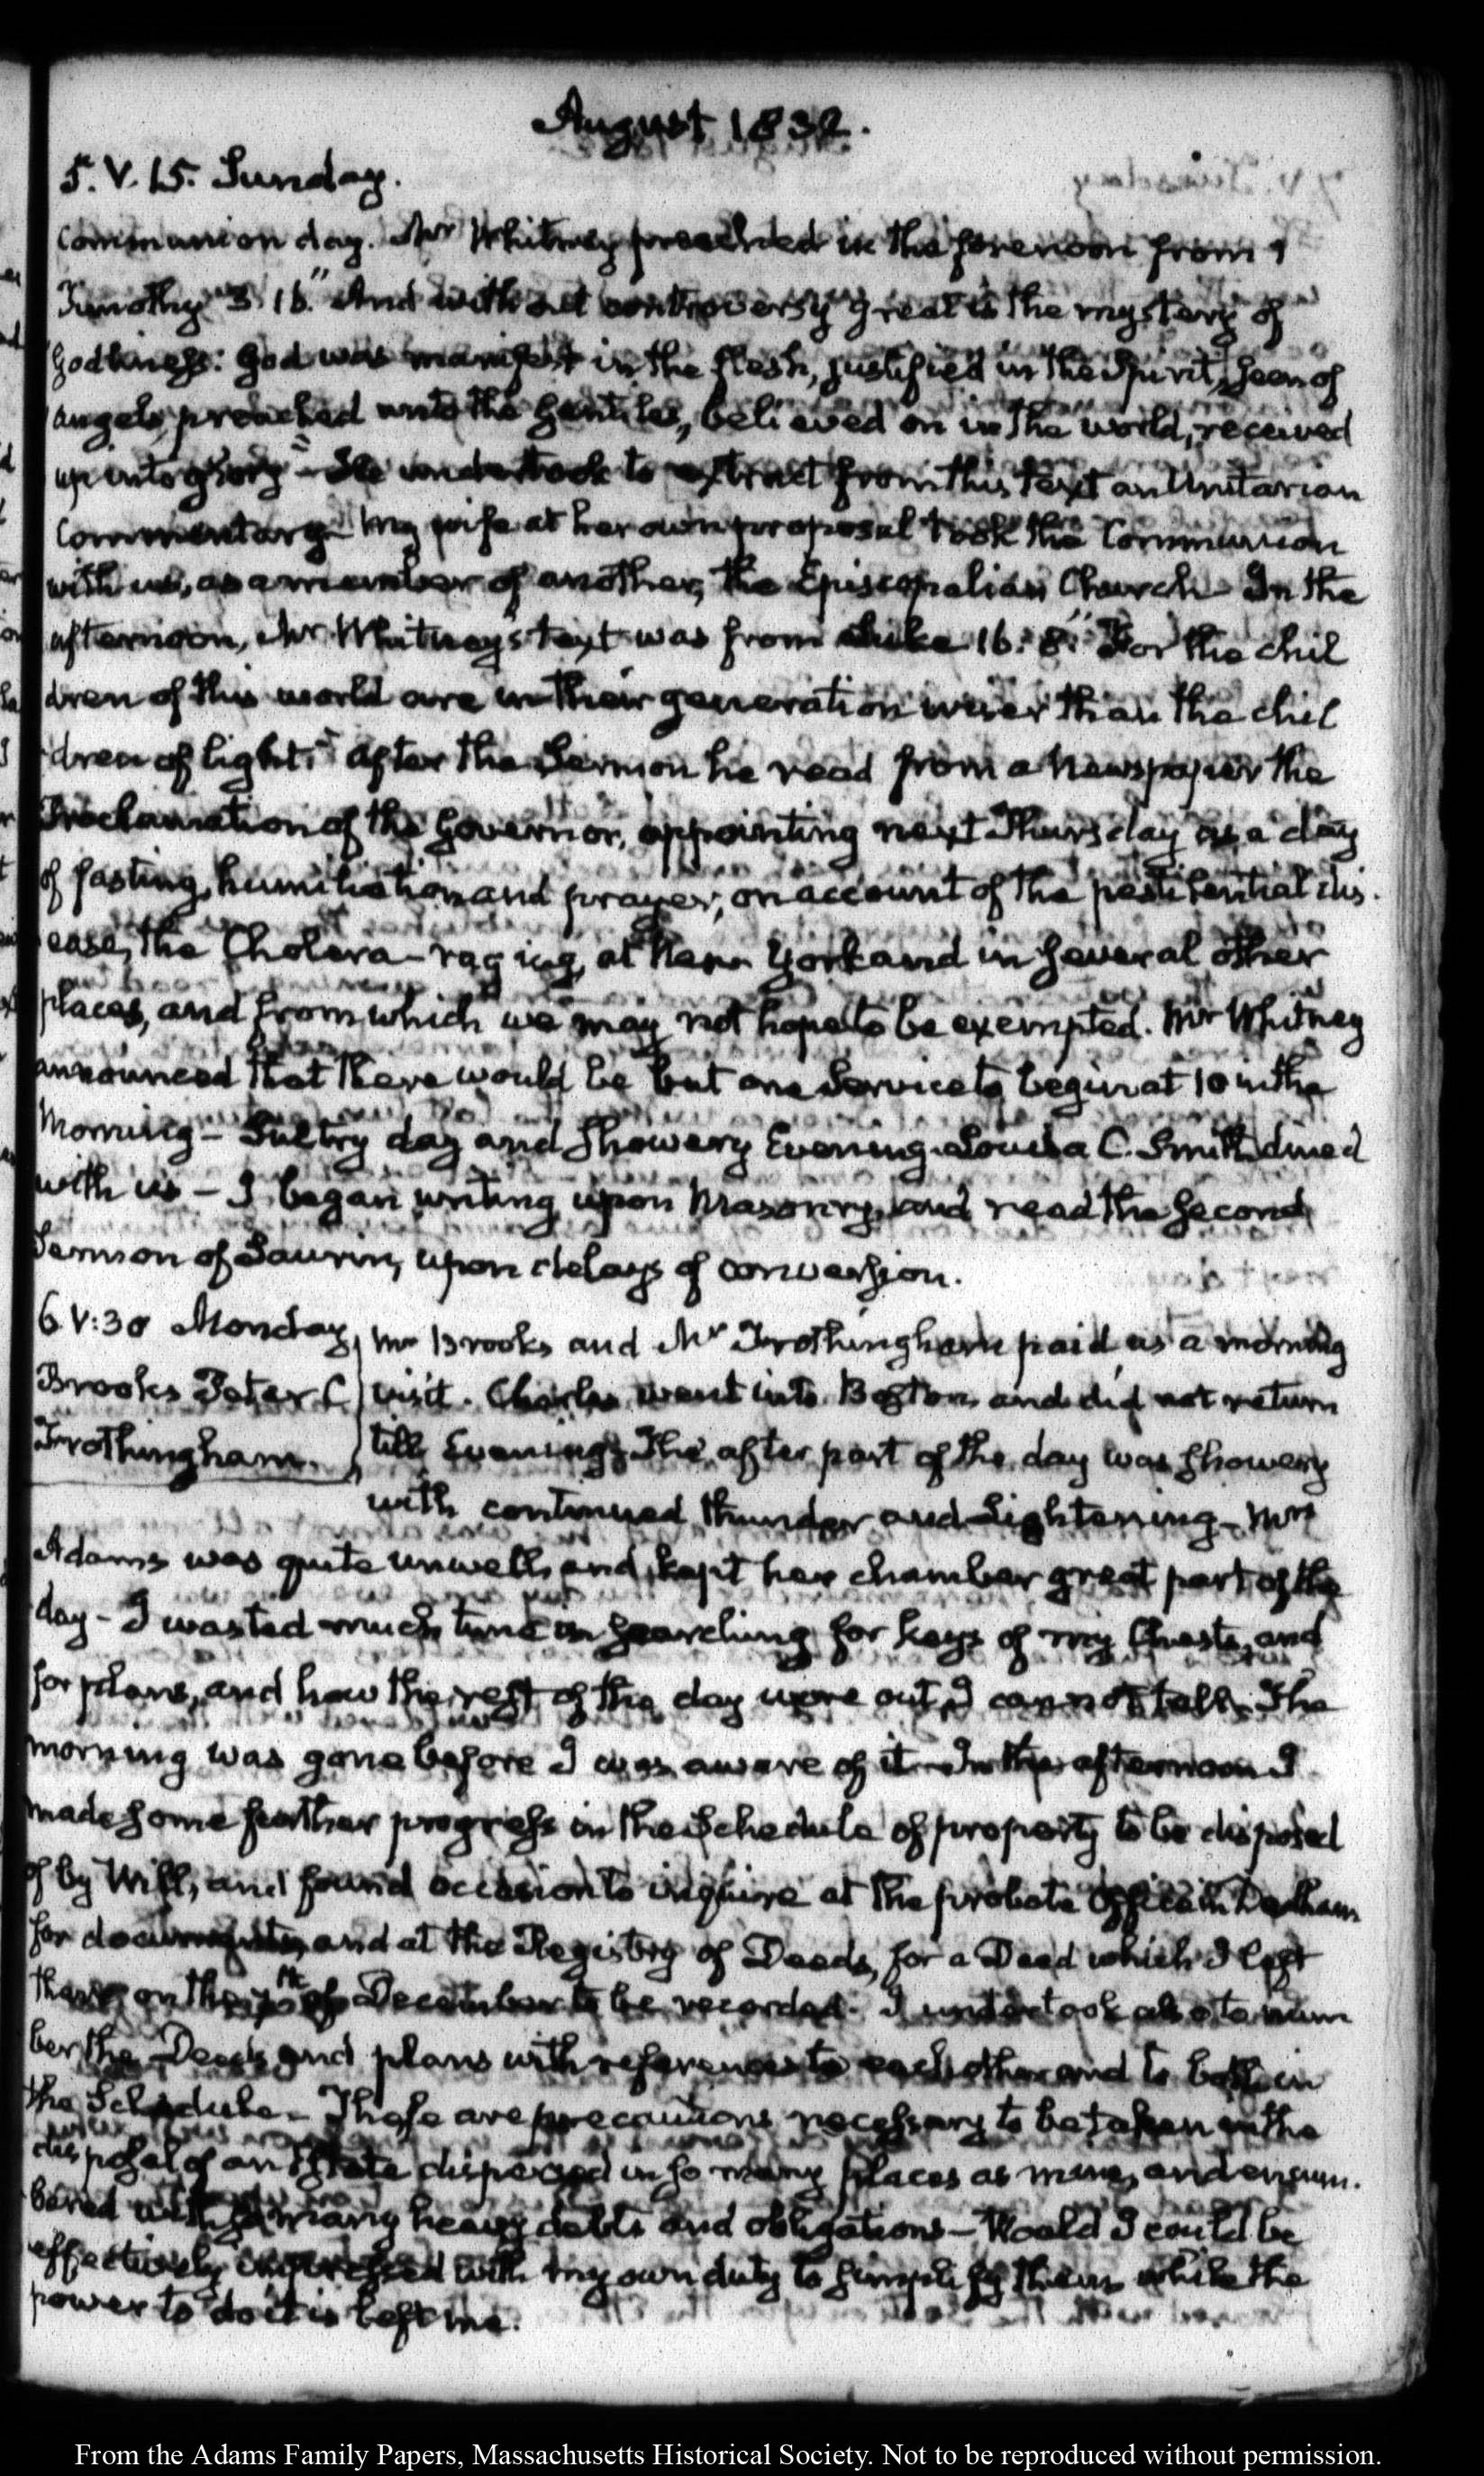 August 1832.
5. V. 15. Sunday.
Communion day. Mr Whitney preached in the forenoon from 1
Timothy 3. 16. "And without controversy great is the mystery of
Godliness: God was manifest in the flesh, justified in the Spirit, seen of
angels, preached unto the Gentiles, believed on in the world, received
up into glory" - He undertook to extract from this text an Unitarian
Commentary - My wife at her own proposal took the Communion
with us, as a member of another, the Episcopalian Church - In the
afternoon, Mr Whitney's text was from Luke 16. 8. "For the chil
dren of this world are in their generation wiser than the chil
dren of light." After the Sermon he read from a Newspaper the
Proclamation of the Governor, appointing next Thursday as a day
of fasting, humiliation and prayer, on account of the pestilential dis.
ease, the Cholera - raging, at New York and in several other
places, and from which we may not hope to be exempted. Mr Whitney
announced that there would be but one Service to begin at 10 in the
Morning - Sultry day and showery Evening. Louisa C. Smith dined
with us - I began writing upon Masonry, and read the second
Sermon of Saurin, upon delays of conversion.
6. V: 30 Monday
Brooks Peter C
Frothingham.
Mr Brooks and Mr Frothingham paid us a morning
visit. Charles went into Boston, and did not return
till Evening. The after part of the day was showery
with continued thunder and Lightening - Mrs
Adams was quite unwell, and kept her chamber great part of the
day - I wasted much time in searching for keys of my Chests, and
for plans, and how the rest of the day wore out, I cannot tell. The
morning was gone before I was aware of it - In the afternoon I
made some further progress in the Schedule of property to be disposed
of by Will, and found occasion to inquire at the probate Office in Dedham
for documents, and at the Registry of Deeds, for a Deed which I left
there on the of December to be recorded. I undertook also to num
ber the Deeds and plans with references to each other and to both in
the Schedule. - These are precautions necessary to be taken in the
disposal of an Estate dispersed in so many places as mine, and encum.
bered with so many heavy debts and obligations - Would I could be
effectively impressed with my own duty to simplify them while the
power to do it is left me.
From the Adams Family Papers, Massachusetts Historical Society. Not to be reproduced without permission.